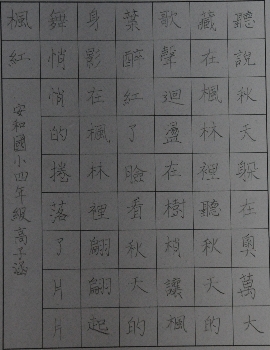 聽說秋天躲在奧萬大
藏在楓林裡聽秋天的
歌聲迴盪在樹梢讓楓
葉醉紅了臉看秋天的
身影在楓林裡翩翩起
舞悄悄的捲落了片片
楓紅
安和國小四年級 高子涵